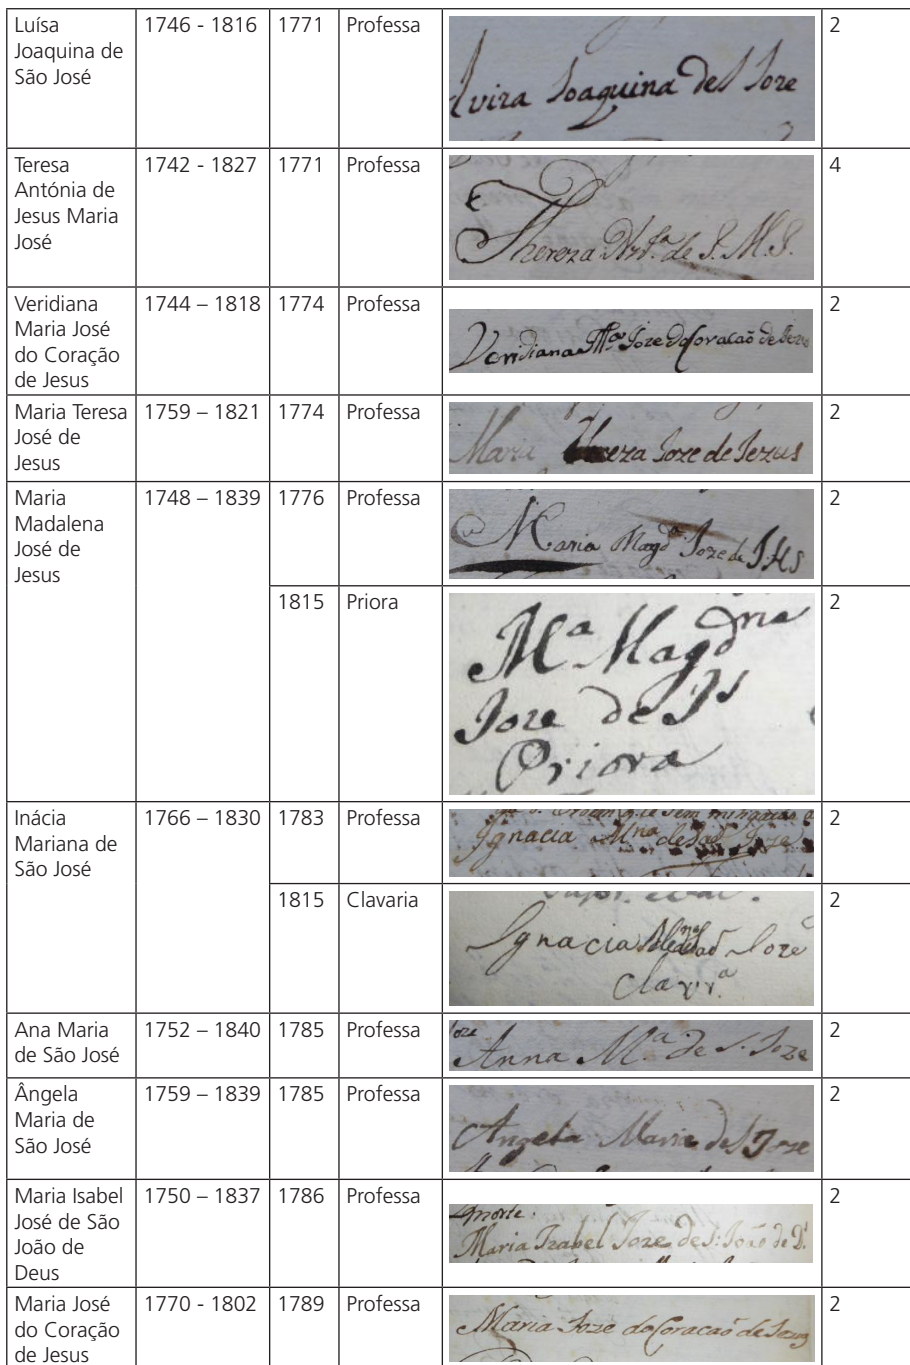 Luísa
Joaquina de
São José
1746 - 1816
1771
Professa
Luiza Joaquina de S Joze
2
Teresa
Antónia de
Jesus Maria
José
1742 - 1827
1771
Professa
Thereza Ant.ª de J. M. J.
4
Veridiana
Maria José
do Coração
de Jesus
1744 – 1818
1774
Professa
Veridiana Mª Joze do Coracaõ de Jezus
2
Maria Teresa
José de
Jesus
1759 – 1821
1774
Professa
Maria Thereza Joze de Jezus
2
Maria
Madalena
José de
Jesus
1748 – 1839
1776
Professa
Maria Magdª Joze de J.H.S
2
1815
Priora
Mª Magdna
Joze de Js
Priora
2
Inácia
Mariana de
São José
1766 – 1830
1783
Professa
Ignacia Mna de Joze
2
1815
Clavaria
Ignacia Joze
Clavrª
2
Ana Maria
de São José
1752 – 1840
1785
Professa
Joze
Anna Mª de S. Joze
2
Ângela
Maria de
São José
1759 – 1839
1785
Professa
Angela Maria de S Joze
2
Maria Isabel
José de São
João de
Deus
1750 – 1837
1786
Professa
morte.
Maria Izabel Joze de S: Joaõ de D.s
2
Maria José
do Coração
de Jesus
1770 - 1802
1789
Professa
Maria Joze do Coracaõ de Jezus
2